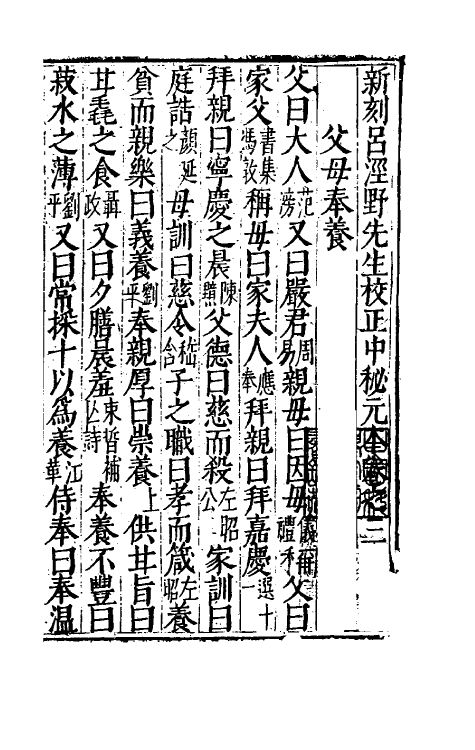 新刻呂涇野先生校正中秘元本卷之二
父母奉養
父曰大人范滂又曰嚴君周易親母曰因母禮儀父曰
家父書集馮敦稱母曰家夫人應奉拜親曰拜嘉慶選十一
拜親曰寧慶之晨陳顥父德曰慈而殺左昭公家訓曰
庭誥顔延之母訓曰慈令嵇含子之職曰孝而箴左昭養
貧而親樂曰義養劉平奉親厚曰崇養上供甘旨曰
甘毳之食聶政又曰夕膳晨羞束晳補亡詩奉養不豐曰
菽水之薄劉平又曰常採十以爲養江華侍奉曰奉溫